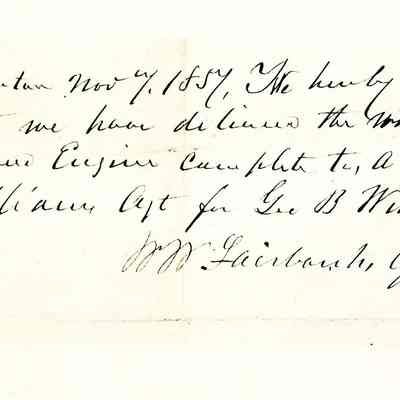 nton Nov 7, 1857, We hereby
we have delivered the
Engine complete to, A
lliams Agt for Geo B
W W Fairbanks